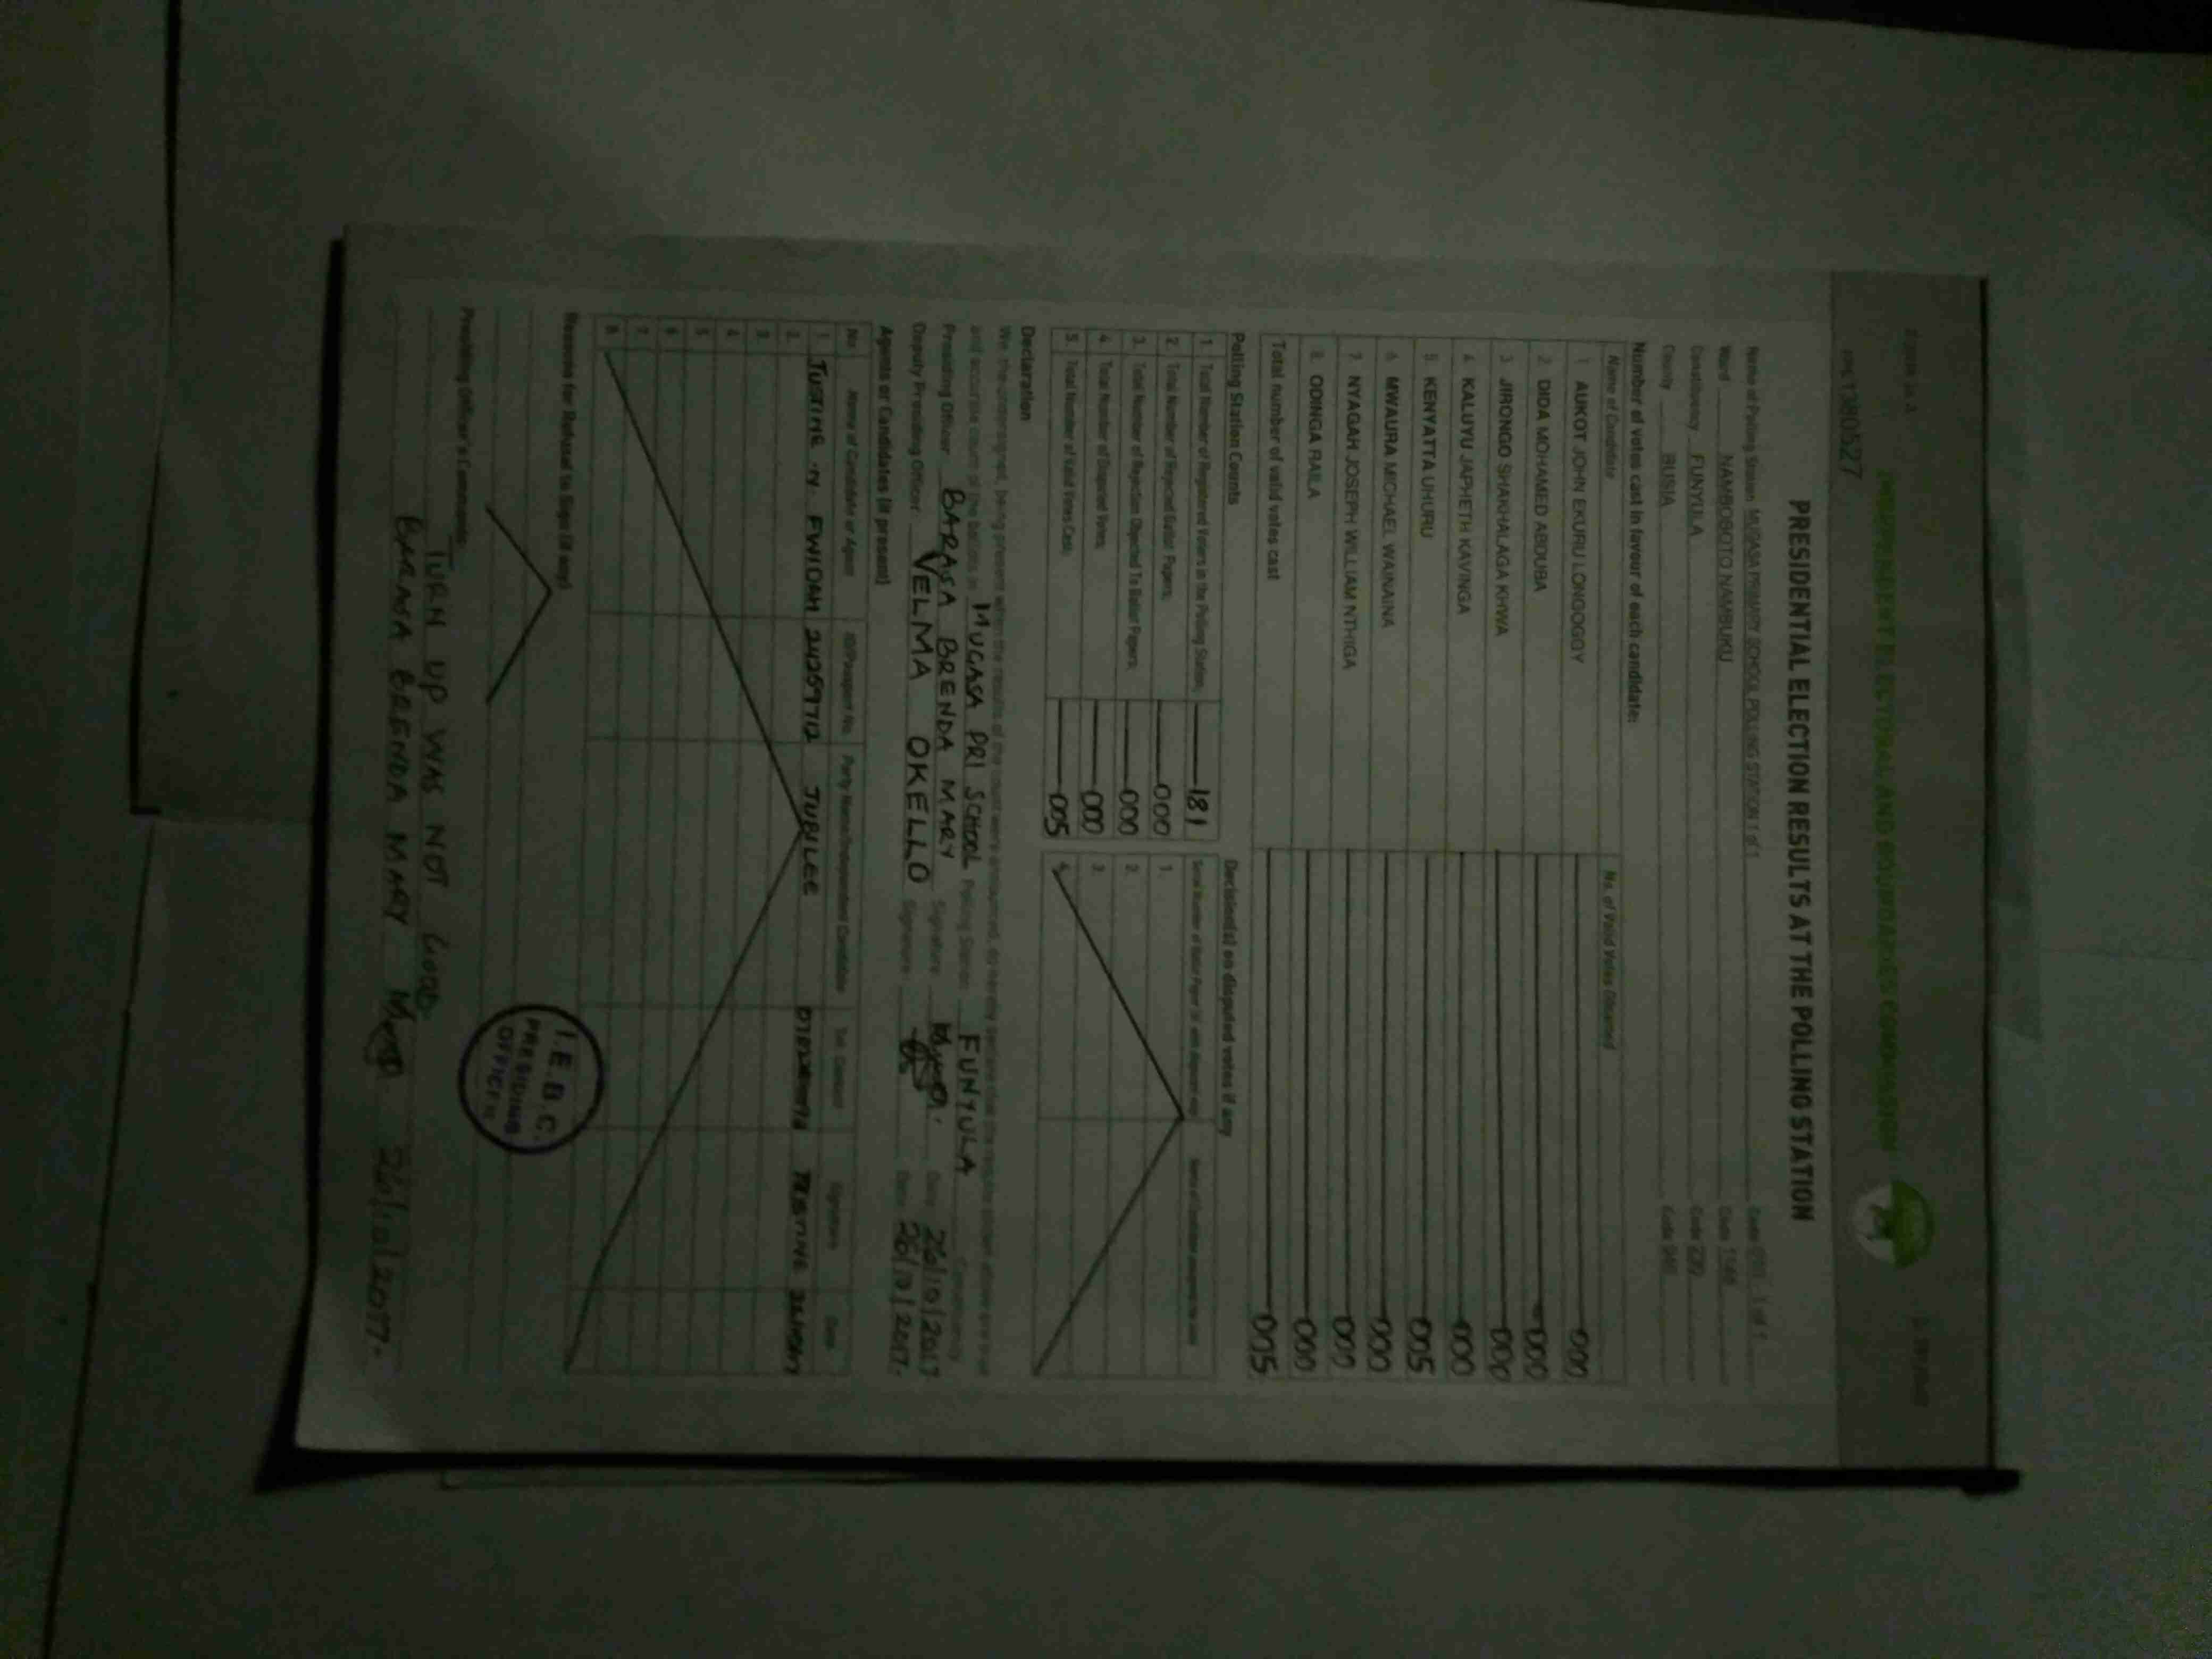 INDEPENDENT ELECTORAL AND BOUNDARIES COMMISSION
PRESIDENTIAL ELECTION RESULTS AT THE POLLING STATION
Name of Polling Station MUGASA PRIMARY SCHOOL POLLING STATION 1 of 1 Code 1 of 1
Ward NAMBOBOTO NAMBUKU Code
Constituency FUNYULA Code
County BUSIA Code
Number of votes cast in favour of each candidate:
Name of Candidate No. of Valid Votes Obtained
1 AUKOT JOHN EKURU LONGOGGY 000
2 DIDA MOHAMED ABDUBA 000
3 JIRONGO SHAKHALAGA KHWA 000
4 KALUYU JAPHETH KAVINGA 000
5 KENYATTA UHURU 005
6 MWAURA MICHAEL WAINAINA 000
7 NYAGAH JOSEPH WILLIAM NTHIGA 000
8 ODINGA RAILA 000
Total number of valid votes cast 005
Polling Station Counts
1. Total Number of Registered Voters in the Polling Station; 181
2. Total Number of Rejected Ballot Papers; 000
3. Total Number of Rejection Objected To Ballot Papers; 000
4. Total Number of Disputed Votes; 000
5. Total Number of Valid Votes Cast; 005
Decision(s) on disputed votes if any
1.
2.
3.
4.
Declaration
We, the undersigned, being present when the results of the count were announced, do hereby declare that the results shown above are true
and accurate count of the ballots in MUGASA PRI SCHOOL Polling Station FUNYULA Constituency
Presiding Officer BARASA BRENDA MARY Signature Date 26/10/2017
Deputy Presiding Officer VELMA OKELLO Signature Date 26/10/2017.
Agents or Candidates (if present)
No. Name of Candidate or Agent ID/Passport No. Party Name/Independent Candidate Tel. Contact Signature Date
1. JUSTINE N. FWIDAH JUBILEE
2.
3.
4.
5.
6.
7.
8.
Reasons for Refusal to Sign (if any)
Presiding Officer's Comments:
TURN UP WAS NOT GOOD.
BARASA BRENDA MARY 26/10/2017.
I.E.B.C.
PRESIDING
OFFICER